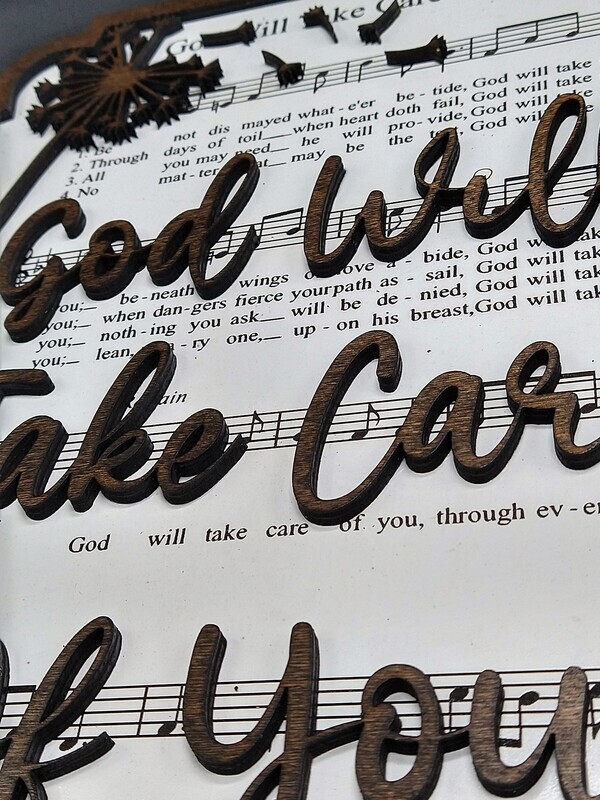 Will Take Care
1. Be not dis mayed what-e'er be-tide, God will take
2. Through days of toil when heart doth fail, God will take
3. All you may need he will pro-vide, God will take
4. No mat-ter what may be the God will take
God Will
you; be-neath wings of love a-bide, God will take
you; when dan-gers fierce your path as-sail, God will take
you; noth-ing you ask will be de-nied, God will take
you; lean, one, up-on his breast, God will take
Take Car
God will take care of you, through ev-er
Of You